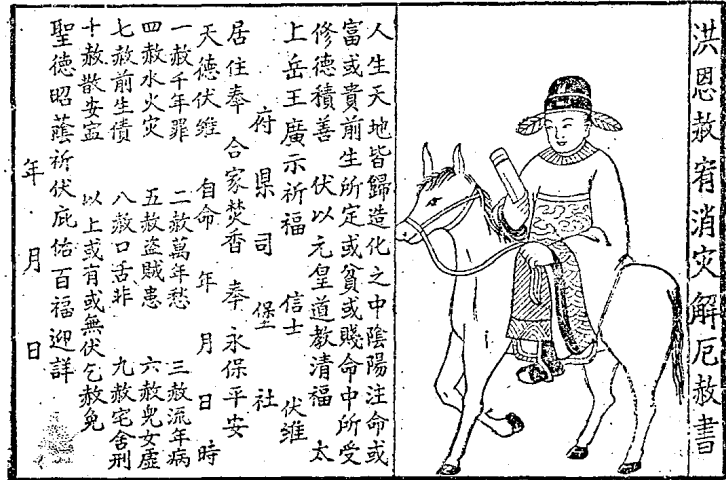 洪恩赦宥消灾解厄赦書
人生天地皆歸造化之中陰陽注命或
富或貴前生所定或貧或賤命中所受
修德積善 伏以元皇道教清福 太
上岳王廣示祈福 信士 伏維
府 県 司 堡 社
居住奉 合家焚香 奉 永保平安
天德伏維 自命 年 月 日 時
一赦千年罪 二赦萬年愁 三赦流年病
四赦水火灾 五赦盗賊患 六赦児女虚
七赦前生債 八赦口舌非 九赦宅舍刑
十赦散安寍 以上或有或無伏乞赦免
聖德昭蔭祈伏庇佑百福迎詳
年 月 日